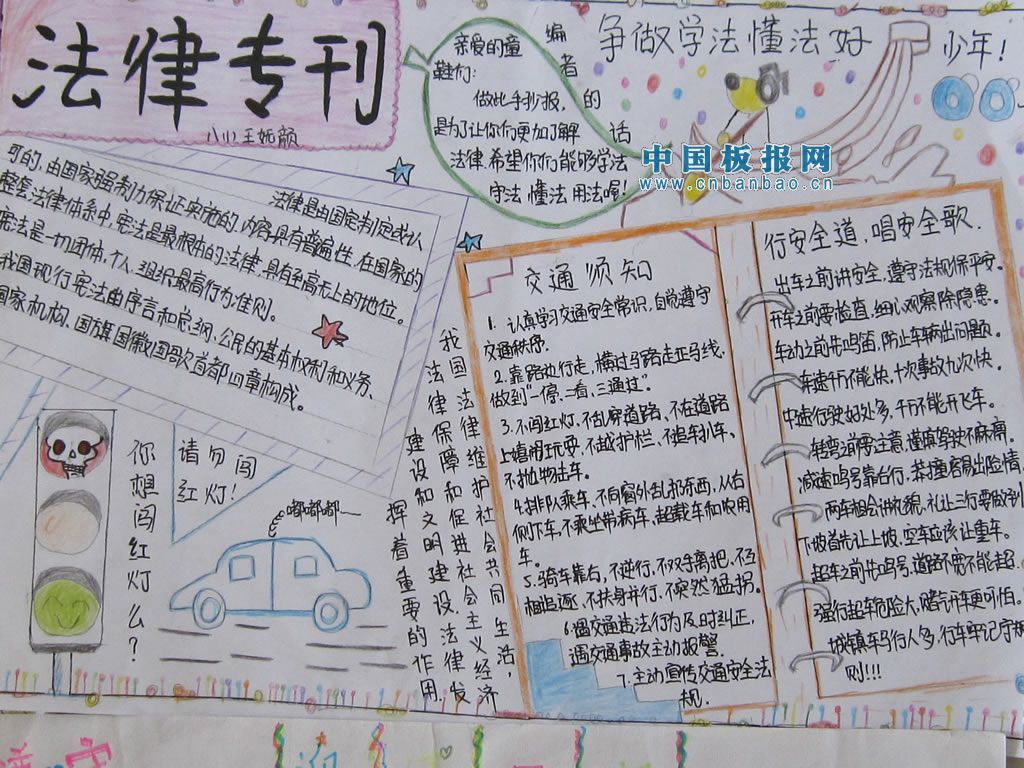 法律专刊
八(1)王妩颜
编者的话
亲爱的童
鞋们:
做此手抄报,
是为了让你们更加了解
法律.希望你们能够学法
守法 懂法 用法喔!
争做学法懂法好
少年!
中国板报网
www.cnbanbao.cn
法律是由国家制定或认
可的,由国家强制力保证实施的,内容具有普遍性,在国家的
整套法律体系中,宪法是最根本的法律,具有至高无上的地位。
宪法是一切团体,个人,组织最高行为准则。
我国现行宪法由序言和总纲,公民的基本权利和义务,
国家机构、国旗国徽国歌首都四章构成。
你想闯红灯么?
请勿闯
红灯!
嘟嘟嘟—
我国法律维护社会共同生活,
法律保障和促进社会主义经济
建设和文明建设,法律发
挥着重要的作用
交通须知
1. 认真学习交通安全常识,自觉遵守
交通秩序.
2.靠路边行走,横过马路走斑马线,
做到"一停、二看、三通过".
3.不闯红灯、不乱穿道路、不在道路
上嬉闹玩耍、不越护栏、不追车扒车、
不抛物击车。
4.排队乘车、不向窗外乱扔东西,从右
侧下车,不乘坐带病车,超载车和农用
车。
5.骑车靠右,不逆行,不双手离把,不互
相追逐,不扶身并行,不突然猛拐。
6.遇交通违法行为及时纠正,
遇交通事故主动报警.
7.主动宣传交通安全法
规.
行安全道,唱安全歌.
出车之前讲安全,遵守法规保平安。
开车之前要检查,细心观察除隐患。
车动之前先鸣笛,防止车辆出问题。
车速千万不能快,十次事故九次快。
中速行驶好处多,千万不能开飞车。
转弯之前要注意,谨慎驾驶不麻痹。
减速鸣号靠右行,莽撞容易出险情
两车相会讲礼貌,礼让三行要做到
下坡首先让上坡,空车应该让重车。
起车之前先鸣号,道路不宽不能超.
强行起车危险大,赌气开车更可怕。
城镇车马行人多,行车牢记守规
则!!!